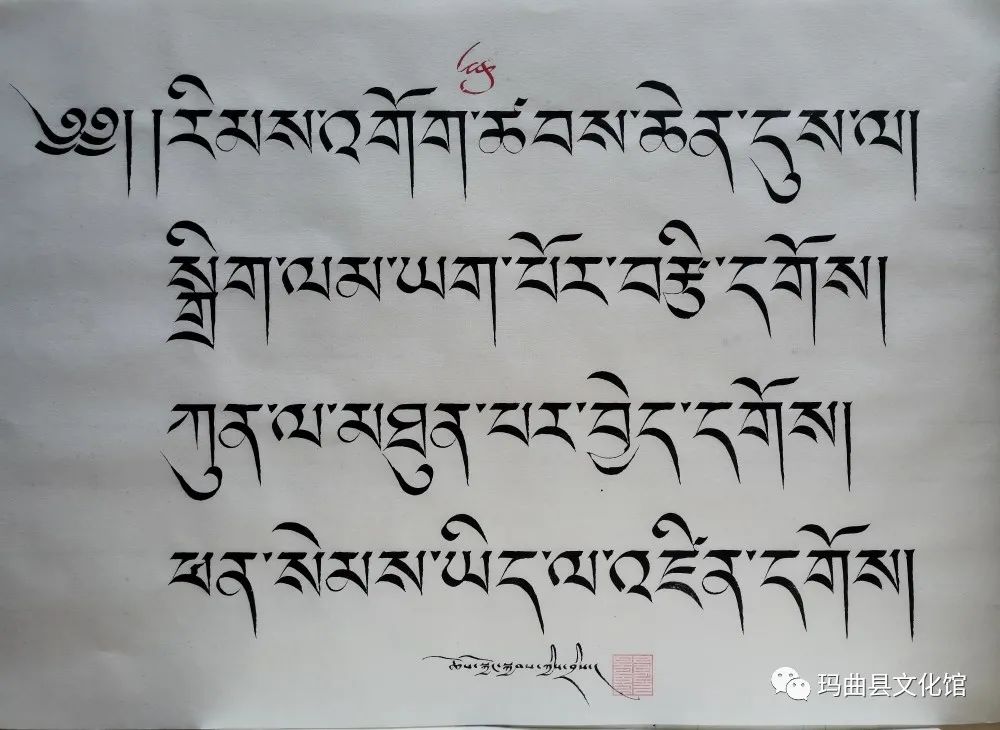 ༄༅། །རིམས་འགོག་ཚབས་ཆེན་དུས་ལ།
སྒྲིག་ལམ་ཡག་པོར་བརྩི་དགོས།
ཀུན་ལ་མཐུན་པར་བྱེད་དགོས།
ཕན་སེམས་ཡིད་ལ་འཛིན་དགོས།
玛曲县文化馆